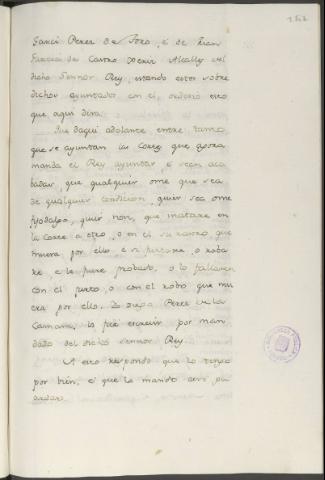 Sanci Perez de Toro, é de Fran
Garcia de Castro Xeriz Alcally del
dicho Sennor Rey, estando estos sobre
dichos ayuntados con el, ordenó esto
que aqui dirá.
Que daqui adelante entre tanto
que se ayuntan las Cortes que agora
manda el Rey ayuntar, é sean aca
badas, que qualquier ome que sea
de qualquier condicion, quier sea ome
fijodalgo, quier non, que matare en
la Corte a otro, o en el su rastro que
muera por ello é si furtare, o roba
re é le fuere probado, o lo fallaren
con el furto, o con el robo que mu
era por ello. Yo Perez de la
Camara, lo fice escrevir por man
dado del dicho Sennor Rey.
A esto respondo que lo tengo
por bien, é que lo mando assi gu
ardar.